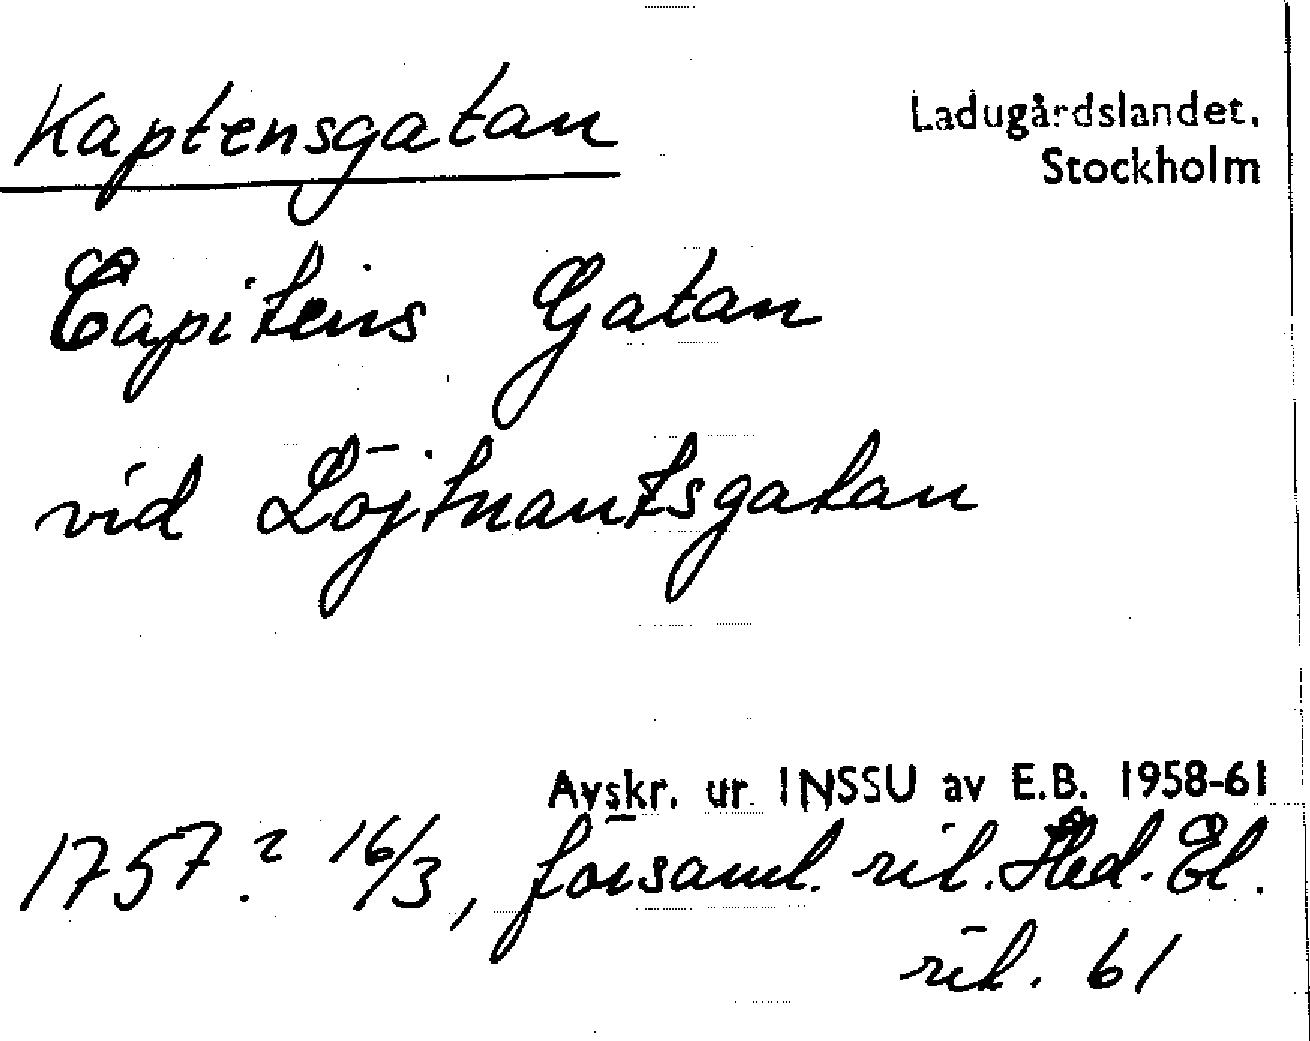 Kaptensgatan
Ladugårdslandet,
Stockholm
Capitens Gatan
vid Löjtnantsgatan
Avskr. ur INSSU av E.B. 1958-61
1757? 16/3, församl. ril. Hed. El.
ril. 61